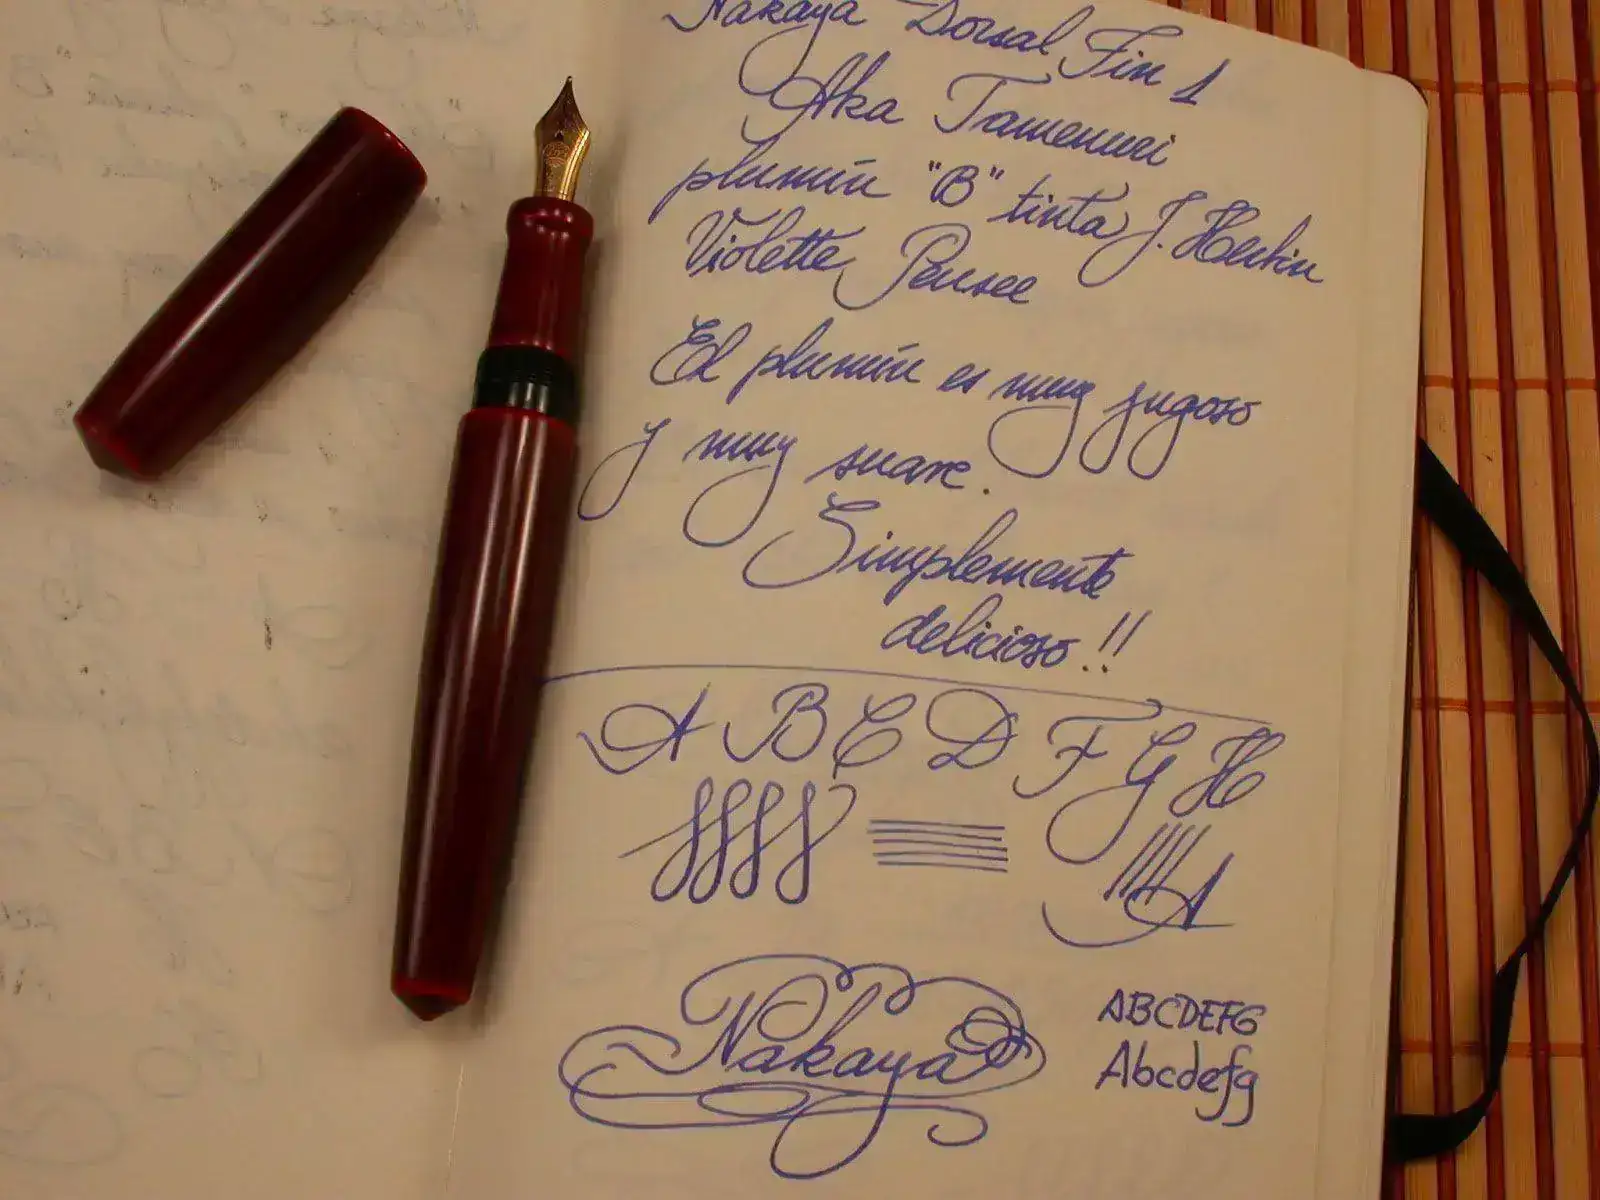 Nakaya Dorsal Fin 1
Aka Tamenuri
plumín "B" tinta J. Herbin
Violette Pensee
El plumín es muy jugoso
y muy suave.
Simplemente
delicioso!!
A B C D F G H
Nakaya
ABCDEFG
Abcdefg